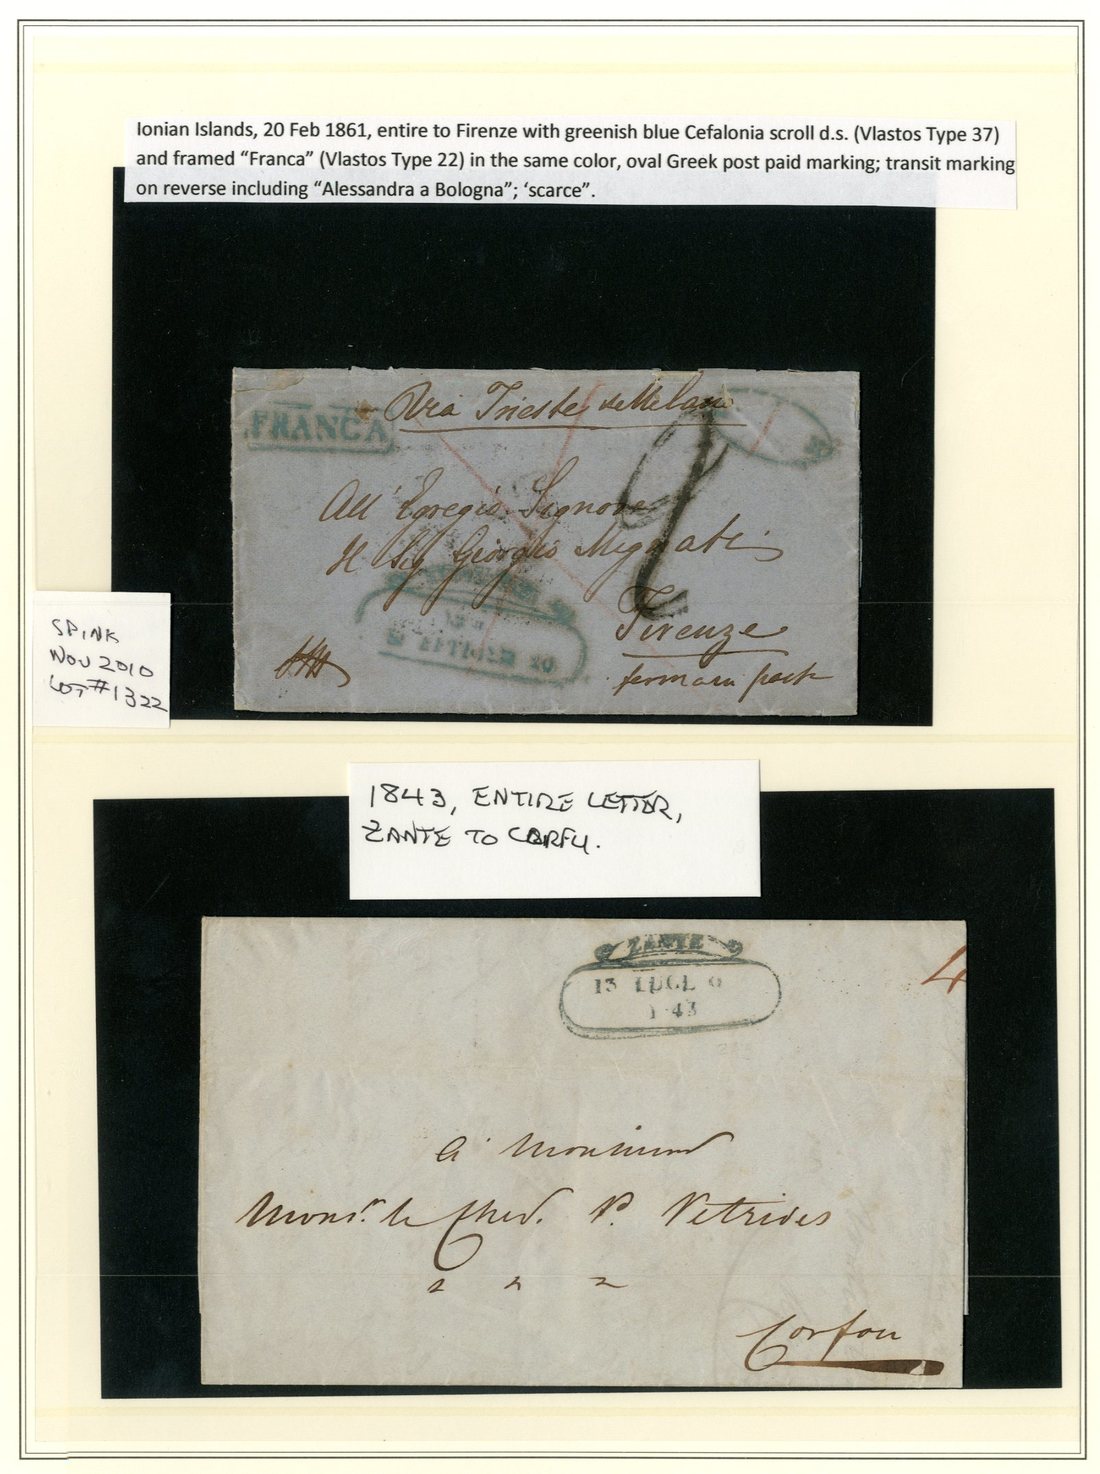 Ionian Islands, 20 Feb 1861, entire to Firenze with greenish blue Cefalonia scroll d.s. (Vlastos Type 37)
and framed “Franca” (Vlastos Type 22) in the same color, oval Greek post paid marking; transit marking
on reverse including “Alessandra a Bologna”; ‘scarce”.
Via Trieste e Milano
FRANCA
All' Egregio Signore
Il Sig Giorgio Mignati
Firenze
ferma in posta
20
SPINK
NOV 2010
LOT #1322
1843, ENTIRE LETTER,
ZANTE TO CORFU.
ZANTE
13 LUGLO
1 43
4
à Monsieur
Monsr. le Chev. P. Petrides
Corfou